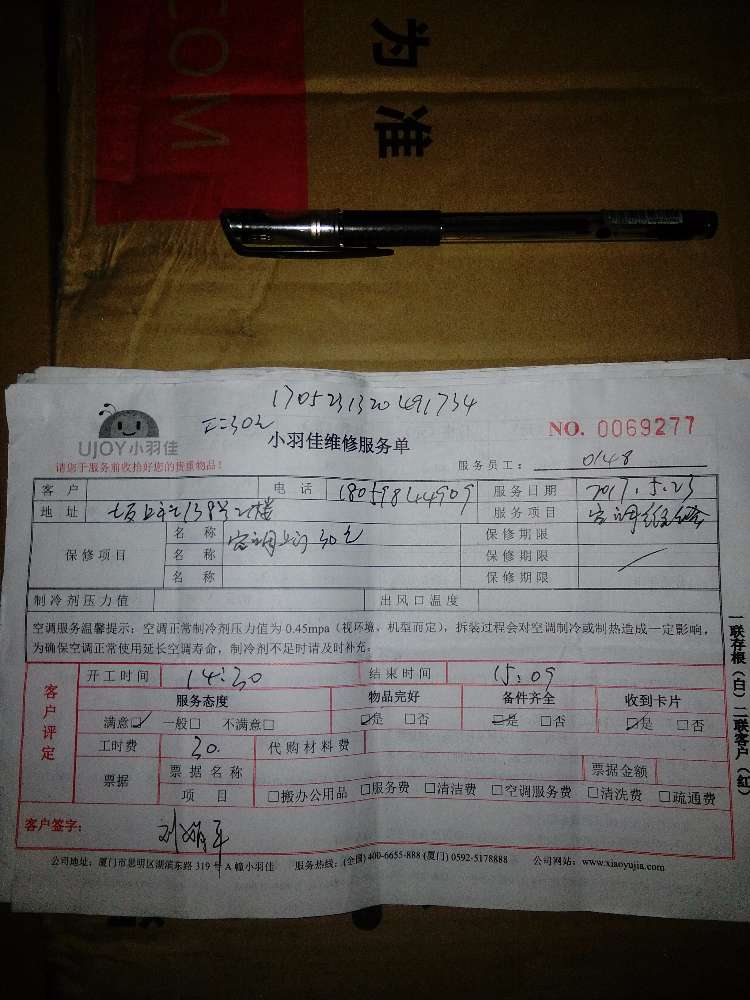 COM
为准
1705231320491734
UJOY小羽佳
小羽佳维修服务单
NO. 0069277
请您于服务前收拾好您的贵重物品！
服务员工： 0148
客户 电话 18059844909 服务日期 2017.5.23
地址 服务项目 空调
保修项目 名称 空调上门30元 保修期限
名称 保修期限
名称 保修期限
制冷剂压力值 出风口温度
空调服务温馨提示：空调正常制冷剂压力值为 0.45mpa（视环境，机型而定），拆装过程会对空调制冷或制热造成一定影响，
为确保空调正常使用延长空调寿命，制冷剂不足时请及时补充。
客户评定 开工时间 14:30 结束时间 15:09
服务态度 物品完好 备件齐全 收到卡片
满意□ 一般□ 不满意□ □是 □否 □是 □否 □是 □否
工时费 30. 代购材料费
票据 票据名称 票据金额
项目 □搬办公用品 □服务费 □清洁费 □空调服务费 □清洗费 □疏通费
客户签字：
公司地址：厦门市思明区湖滨东路 319 号 A 幢小羽佳 服务热线：(全国) 400-6655-888 (厦门) 0592-5178888 公司网站：www.xiaoyujia.com
一联存根（白）二联客户（红）